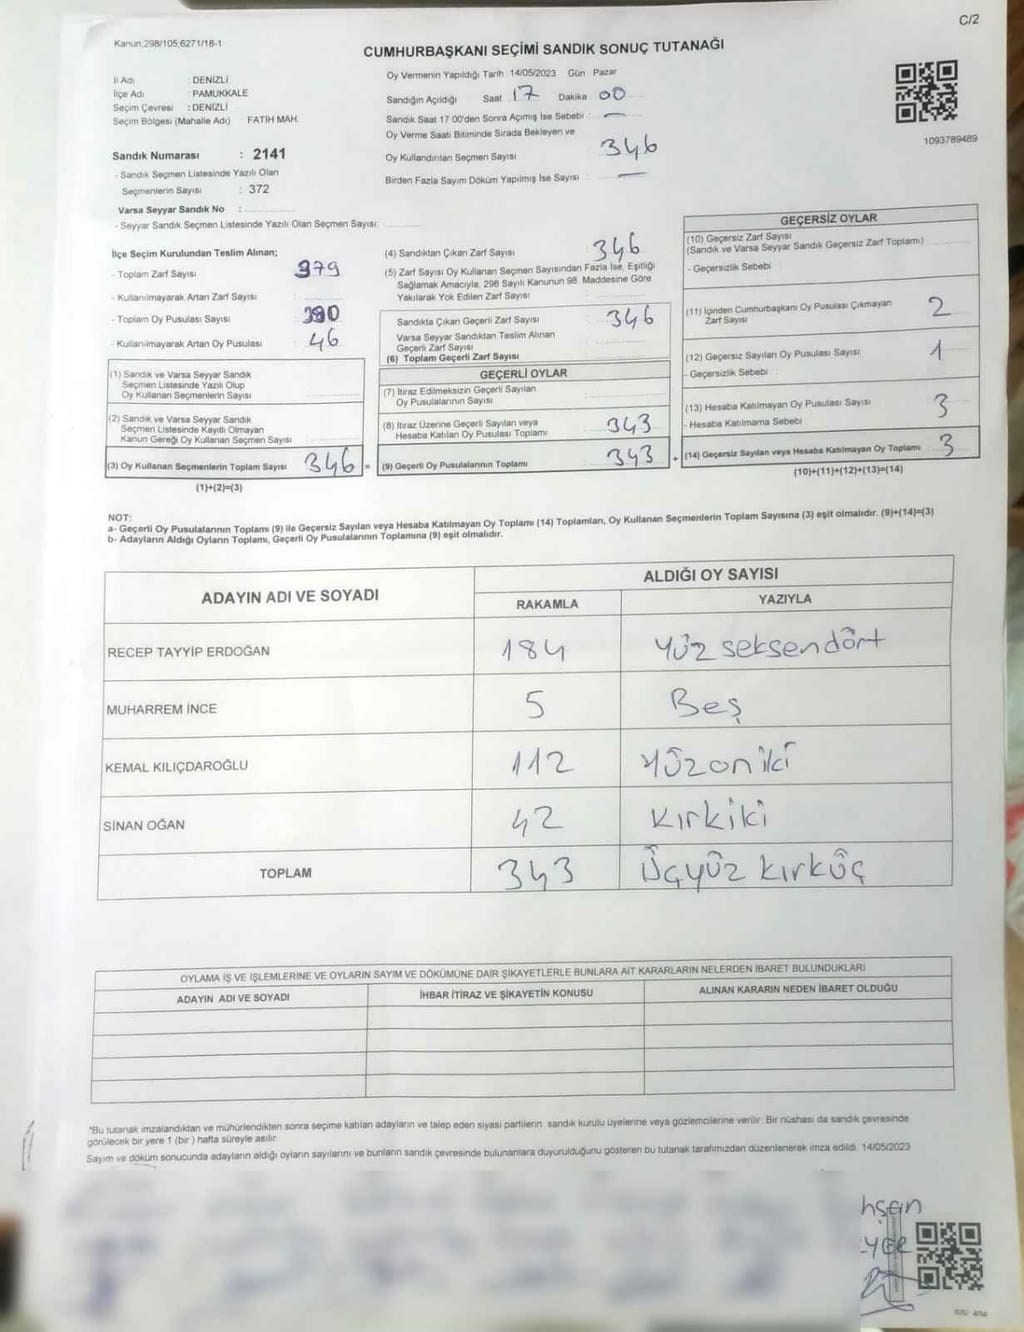 C/2
Kanun:298/105;6271/18-1
CUMHURBAŞKANI SEÇİMİ SANDIK SONUÇ TUTANAĞI
İl Adı : DENİZLİ
İlçe Adı : PAMUKKALE
Seçim Çevresi : DENİZLİ
Seçim Bölgesi (Mahalle Adı) FATİH MAH.
Sandık Numarası : 2141
- Sandık Seçmen Listesinde Yazılı Olan
Seçmenlerin Sayısı : 372
Varsa Seyyar Sandık No :
- Seyyar Sandık Seçmen Listesinde Yazılı Olan Seçmen Sayısı:
Oy Vermenin Yapıldığı Tarih :14/05/2023 Gün Pazar
Sandığın Açıldığı Saat 17 Dakika 00
Sandık Saat 17 00'den Sonra Açımış İse Sebebi : —
Oy Verme Saati Bitiminde Sırada Bekleyen ve
Oy Kullandırılan Seçmen Sayısı 346
Birden Fazla Sayım Döküm Yapılmış İse Sayısı : —
1093789489
İlçe Seçim Kurulundan Teslim Alınan;
- Toplam Zarf Sayısı 379
- Kullanılmayarak Artan Zarf Sayısı
- Toplam Oy Pusulası Sayısı 390
- Kullanılmayarak Artan Oy Pusulası 46
(1) Sandık ve Varsa Seyyar Sandık
Seçmen Listesinde Yazılı Olup
Oy Kullanan Seçmenlerin Sayısı
(2) Sandık ve Varsa Seyyar Sandık
Seçmen Listesinde Kayıtlı Olmayan
Kanun Gereği Oy Kullanan Seçmen Sayısı
(3) Oy Kullanan Seçmenlerin Toplam Sayısı 346 =
(1)+(2)=(3)
(4) Sandıktan Çıkan Zarf Sayısı 346
(5) Zarf Sayısı Oy Kullanan Seçmen Sayısından Fazla İse, Eşitliği
Sağlamak Amacıyla, 298 Sayılı Kanunun 98. Maddesine Göre
Yakılarak Yok Edilen Zarf Sayısı
Sandıkta Çıkan Geçerli Zarf Sayısı 346
Varsa Seyyar Sandıktan Teslim Alınan
Geçerli Zarf Sayısı
(6) Toplam Geçerli Zarf Sayısı
GEÇERLİ OYLAR
(7) İtiraz Edilmeksizin Geçerli Sayılan
Oy Pusulalarının Sayısı
(8) İtiraz Üzerine Geçerli Sayılan veya
Hesaba Katılan Oy Pusulası Toplamı 343
(9) Geçerli Oy Pusulalarının Toplamı 343 +
GEÇERSİZ OYLAR
(10) Geçersiz Zarf Sayısı
(Sandık ve Varsa Seyyar Sandık Geçersiz Zarf Toplamı)
- Geçersizlik Sebebi :
(11) İçinden Cumhurbaşkanı Oy Pusulası Çıkmayan
Zarf Sayısı 2
(12) Geçersiz Sayılan Oy Pusulası Sayısı 1
- Geçersizlik Sebebi :
(13) Hesaba Katılmayan Oy Pusulası Sayısı 3
- Hesaba Katılmama Sebebi :
(14) Geçersiz Sayılan veya Hesaba Katılmayan Oy Toplamı 3
(10)+(11)+(12)+(13)=(14)
NOT:
a- Geçerli Oy Pusulalarının Toplamı (9) ile Geçersiz Sayılan veya Hesaba Katılmayan Oy Toplamı (14) Toplamları, Oy Kullanan Seçmenlerin Toplam Sayısına (3) eşit olmalıdır. (9)+(14)=(3)
b- Adayların Aldığı Oyların Toplamı, Geçerli Oy Pusulalarının Toplamına (9) eşit olmalıdır.
ADAYIN ADI VE SOYADI
ALDIĞI OY SAYISI
RAKAMLA YAZIYLA
RECEP TAYYİP ERDOĞAN 184 Yüz seksendört
MUHARREM İNCE 5 Beş
KEMAL KILIÇDAROĞLU 112 Yüzoniki
SİNAN OĞAN 42 Kırkiki
TOPLAM 343 Üçyüz kırküç
OYLAMA İŞ VE İŞLEMLERİNE VE OYLARIN SAYIM VE DÖKÜMÜNE DAİR ŞİKAYETLERLE BUNLARA AİT KARARLARIN NELERDEN İBARET BULUNDUKLARI
ADAYIN ADI VE SOYADI İHBAR İTİRAZ VE ŞİKAYETİN KONUSU ALINAN KARARIN NEDEN İBARET OLDUĞU
*Bu tutanak imzalandıktan ve mühürlendikten sonra seçime katılan adayların ve talep eden siyasi partilerin sandık kurulu üyelerine veya gözlemcilerine verilir. Bir nüshası da sandık çevresinde
görülecek bir yere 1 (bir) hafta süreyle asılır.
Sayım ve döküm sonucunda adayların aldığı oyların sayılarını ve bunların sandık çevresinde bulunanlara duyurulduğunu gösteren bu tutanak tarafımızdan düzenlenerek imza edildi. 14/05/2023
hsan